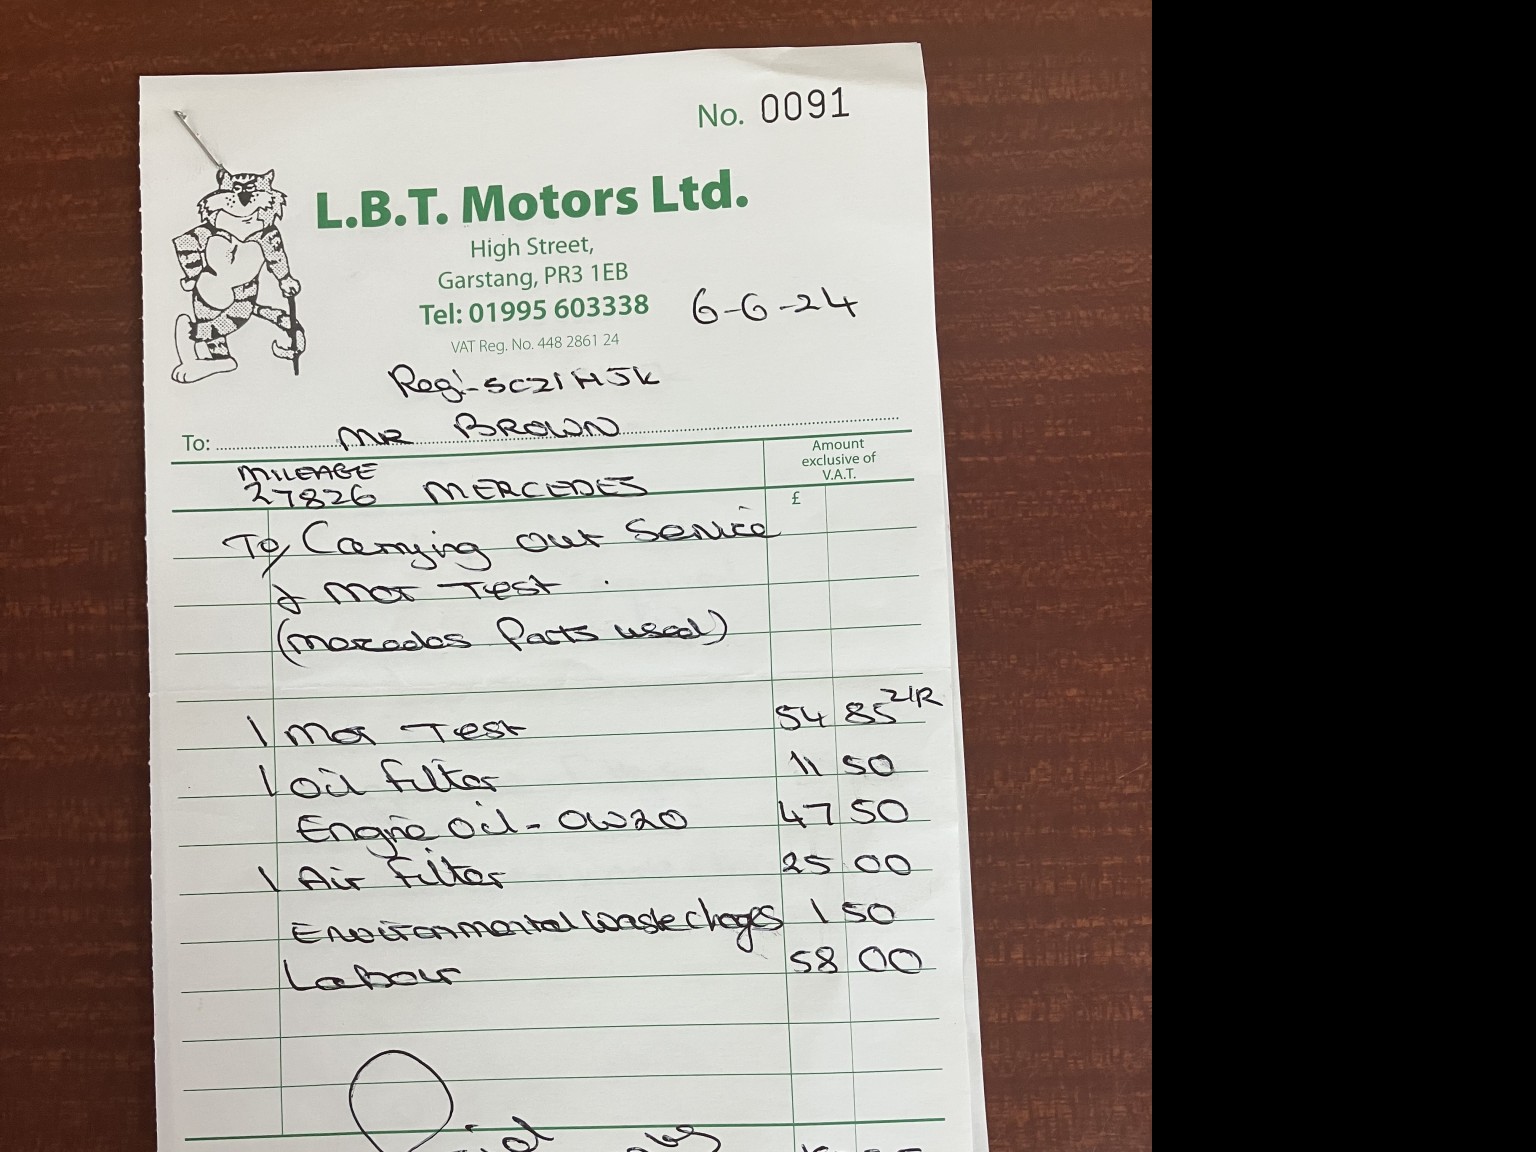 No. 0091
L.B.T. Motors Ltd.
High Street,
Garstang, PR3 1EB
Tel: 01995 603338
6-6-24
VAT Reg. No. 448 2861 24
Reg:- SC21 HJK
To: MR BROWN
Amount
exclusive of
V.A.T.
MILEAGE
27826 MERCEDES
£
To/ Carrying out Service
& Mot Test.
(Mercedes Parts used)
1 Mot Test 54 85 Z/R
1 Oil Filter 11 50
Engine Oil - 0W20 47 50
1 Air Filter 25 00
Environmental Waste charges 1 50
Labour 58 00